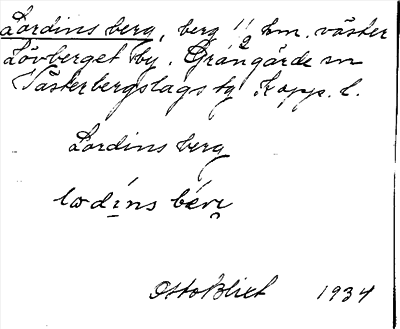 Lordins berg, berg 1 1/2 km. väster
Lövberget by. Grangärde sn
Västerbergslags tg Kopp. l.
Lordins berg
lodins bérg
Otto Blixt 1934